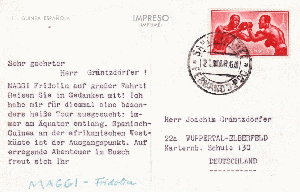 GUINEA ESPAÑOLA
IMPRESO
IMPRIMÉ
Sehr geehrter
Herr Gräntzdörffer !
MAGGI Fridolin auf großer Fahrt!
Reisen Sie in Gedanken mit! Ich
habe mir für diesmal eine beson-
ders heiße Tour ausgesucht: im-
mer am Äquator entlang. Spanisch-
Guinea an der afrikanischen West-
küste ist der Ausgangspunkt. Auf
erregende Abenteuer im Busch
freut sich Ihr
MAGGI - Fridolin
FERNANDO POO
Herrn Joachim Gräntzdörffer
22a WUPPERTAL-ELBERFELD
Karternb. Schule 130
DEUTSCHLAND